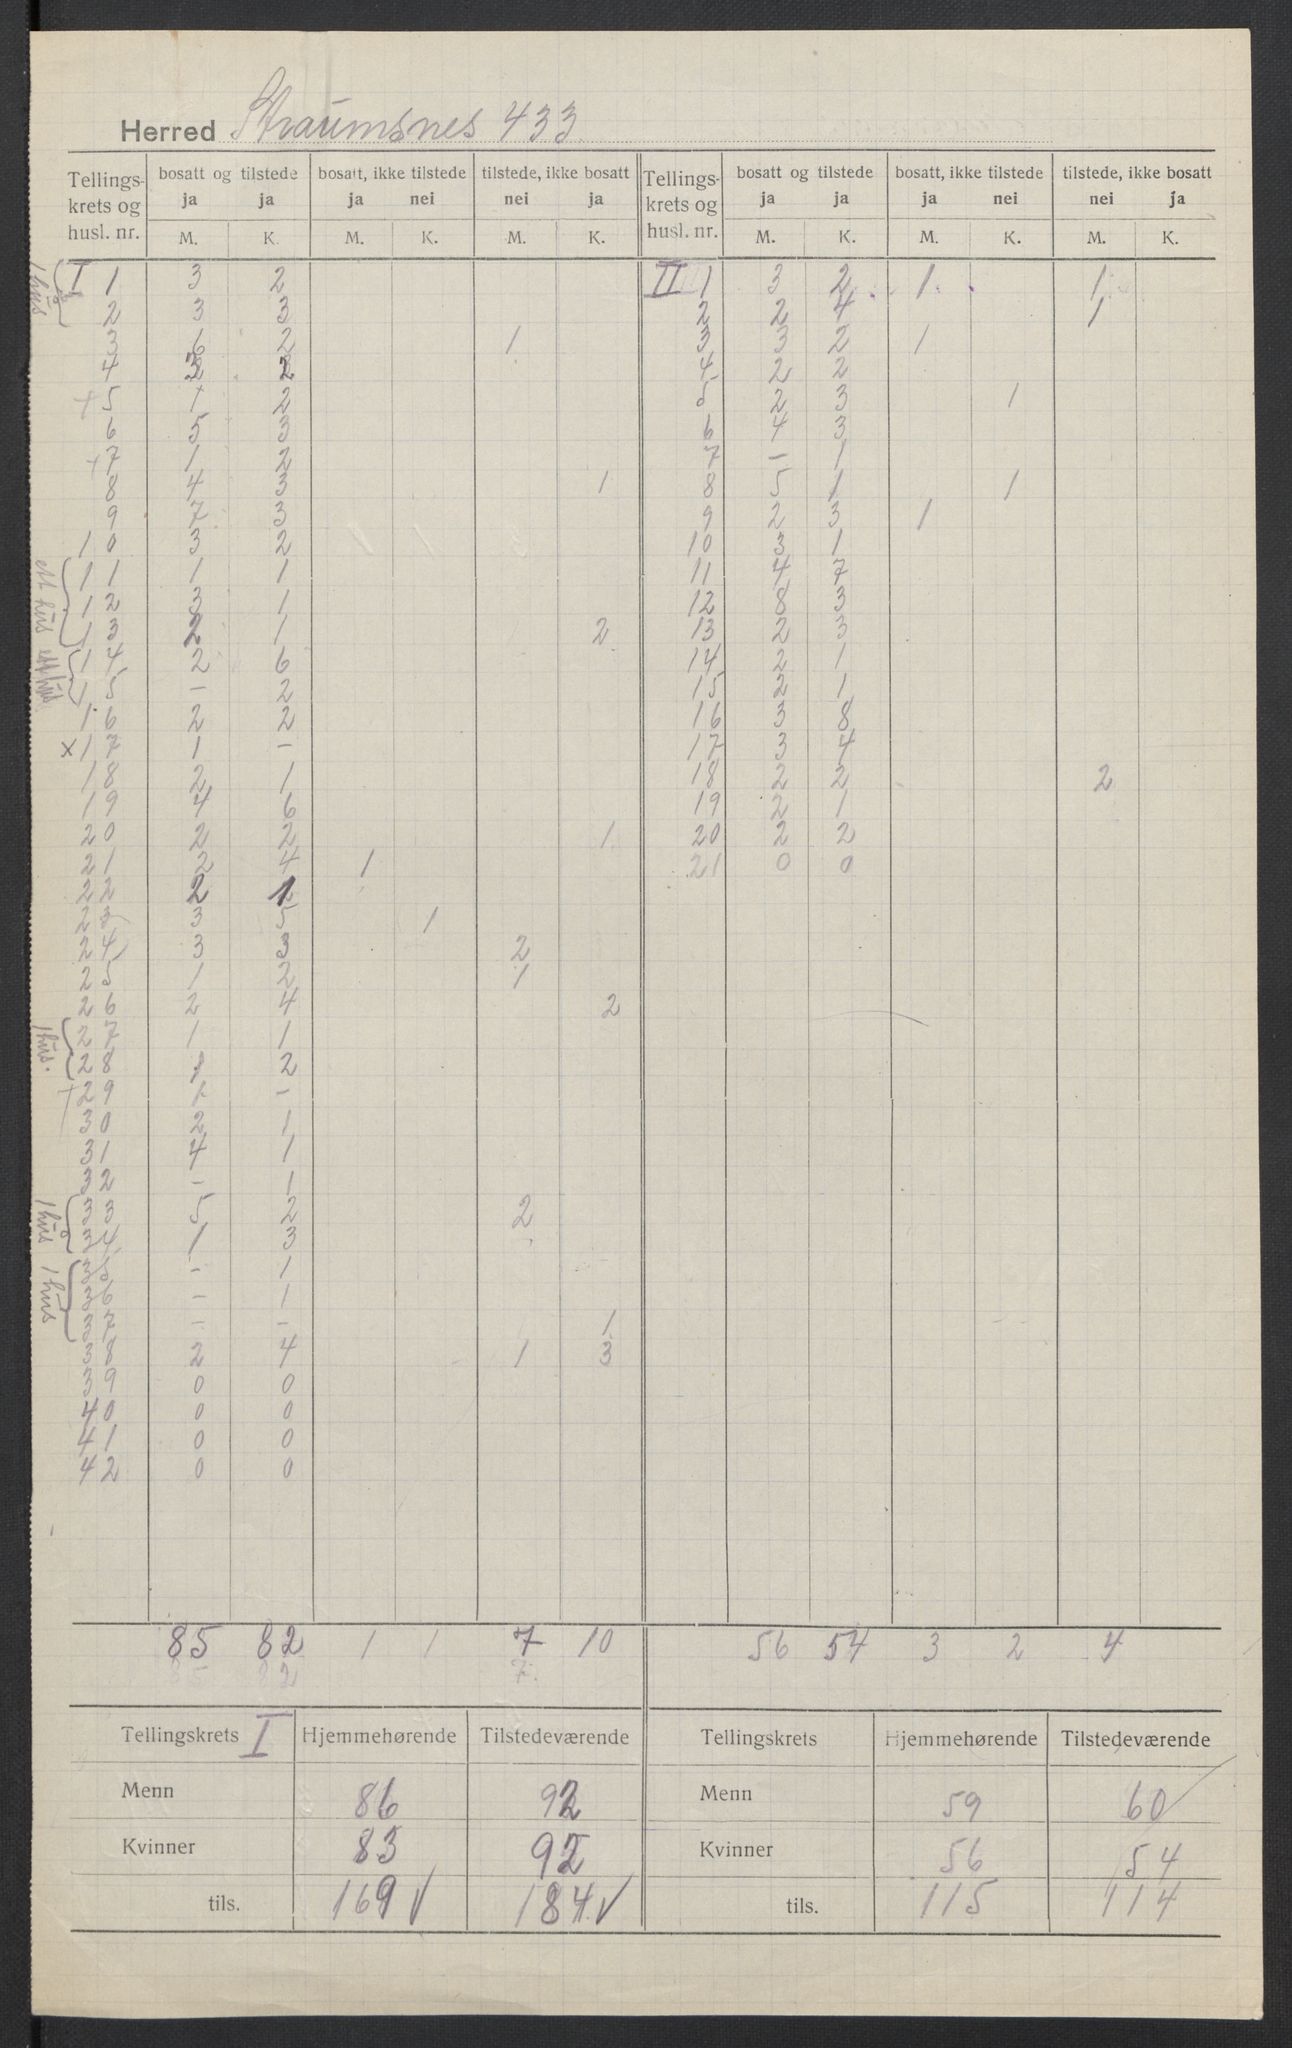 Herred Straumsnes 433
Tellings- krets og husl. nr. | bosatt og tilstede | bosatt, ikke tilstede | tilstede, ikke bosatt | Tellings- krets og husl. nr. | bosatt og tilstede | bosatt, ikke tilstede | tilstede, ikke bosatt
ja ja | ja nei | nei ja | ja ja | ja nei | nei ja
M. K. | M. K. | M. K. | M. K. | M. K. | M. K.
1 hus
I 1 | 3 | 2 | | | | | II 1 | 3 | 2 | 1 | | 1 |
2 | 3 | 3 | | | | | 2 | 2 | 4 | | | 1 |
3 | 6 | 2 | | | 1 | | 3 | 3 | 2 | 1 | | |
4 | 3 | 2 | | | | | 4 | 2 | 2 | | | |
+ 5 | 1 | 2 | | | | | 5 | 2 | 3 | | 1 | |
6 | 5 | 3 | | | | | 6 | 4 | 3 | | | |
+ 7 | 1 | 2 | | | | | 7 | - | 1 | | | |
8 | 4 | 3 | | | | 1 | 8 | 5 | 1 | | 1 | |
9 | 7 | 3 | | | | | 9 | 2 | 3 | 1 | | |
10 | 3 | 2 | | | | | 10 | 3 | 1 | | | |
ett hus
11 | 1 | 1 | | | | | 11 | 4 | 7 | | | |
12 | 3 | 1 | | | | | 12 | 8 | 3 | | | |
13 | 2 | 1 | | | | 2 | 13 | 2 | 3 | | | |
ett hus
14 | 2 | 6 | | | | | 14 | 2 | 1 | | | |
15 | - | 2 | | | | | 15 | 2 | 1 | | | |
16 | 2 | 2 | | | | | 16 | 3 | 8 | | | |
x 17 | 1 | - | | | | | 17 | 3 | 4 | | | |
18 | 2 | 1 | | | | | 18 | 2 | 2 | | | 2 |
19 | 4 | 6 | | | | | 19 | 2 | 1 | | | |
20 | 2 | 2 | | | | 1 | 20 | 2 | 2 | | | |
21 | 2 | 4 | 1 | | | | 21 | 0 | 0 | | | |
22 | 2 | 1
23 | 3 | 5 | | 1
24 | 3 | 3 | | | 2
25 | 1 | 2 | | | 1
26 | 2 | 4 | | | | 2
1 hus.
27 | 1 | 1
28 | 1 | 2
+ 29 | 1 | -
30 | 2 | 1
31 | 4 | 1
32 | - | 1
1 hus
33 | 5 | 2 | | | 2
34 | 1 | 3
1 hus
35 | - | 1
36 | - | 1
37 | - | - | | | | 1
38 | 2 | 4 | | | 1 | 3
39 | 0 | 0
40 | 0 | 0
41 | 0 | 0
42 | 0 | 0
85 | 82 | 1 | 1 | 7 | 10 | 56 | 54 | 3 | 2 | 4
85 | 82 | 7.
Tellingskrets I | Hjemmehørende | Tilstedeværende | Tellingskrets | Hjemmehørende | Tilstedeværende
Menn | 86 | 92 | Menn | 59 | 60
Kvinner | 83 | 92 | Kvinner | 56 | 54
tils. | 169 √ | 184 √ | tils. | 115 | 114